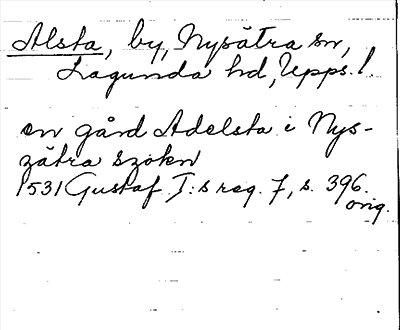 Alsta, by, Nysätra sn,
Lagunda hd, Upps. l.
en gård Adelsta i Nys-
zätra szokn
1531 Gustaf I:s reg. 7, s. 396.
orig.